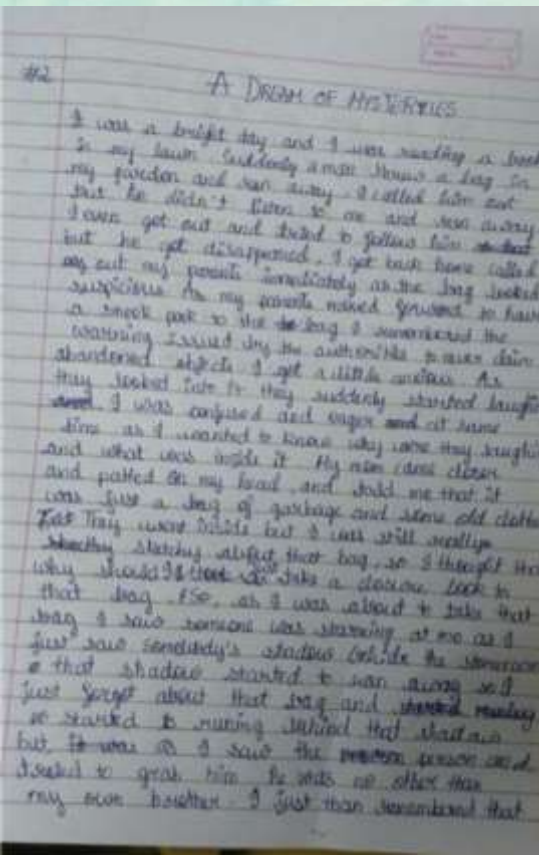 #2
A DREAM OF MYSTERIES
I was a bright day and I was reading a book
in my lawn. Suddenly a man threw a bag in
my garden and ran away. I called him out
but he didn't listen to me and ran away
I even got out and tried to follow him
but he got disappeared. I got back home called
out my parents immediately as the bag looked
suspicious. As my parents moved forward to have
a sneek peek to the bag I remembered the
warning issued by the authorities to never claim
abandoned objects. I got a little anxious. As
they looked into it they suddenly started laughing
I was confused and eager at same
time as I wanted to know why were they laughing
and what was inside it. My mom came closer
and patted on my head and told me that it
was just a bag of garbage and some old clothes
They went inside but I was still really
sketchy about that bag, so I thought that
why should I take a closer look to
that bag. So, as I was about to take that
bag I saw someone was starring at me as I
just saw somebody's shadow behind the
that shadow started to ran away so I
just forget about that bag and
so started to runing behind that shadow
but, I saw the person and
I tried to grab him he was no other than
my own brother. I just than remembered that